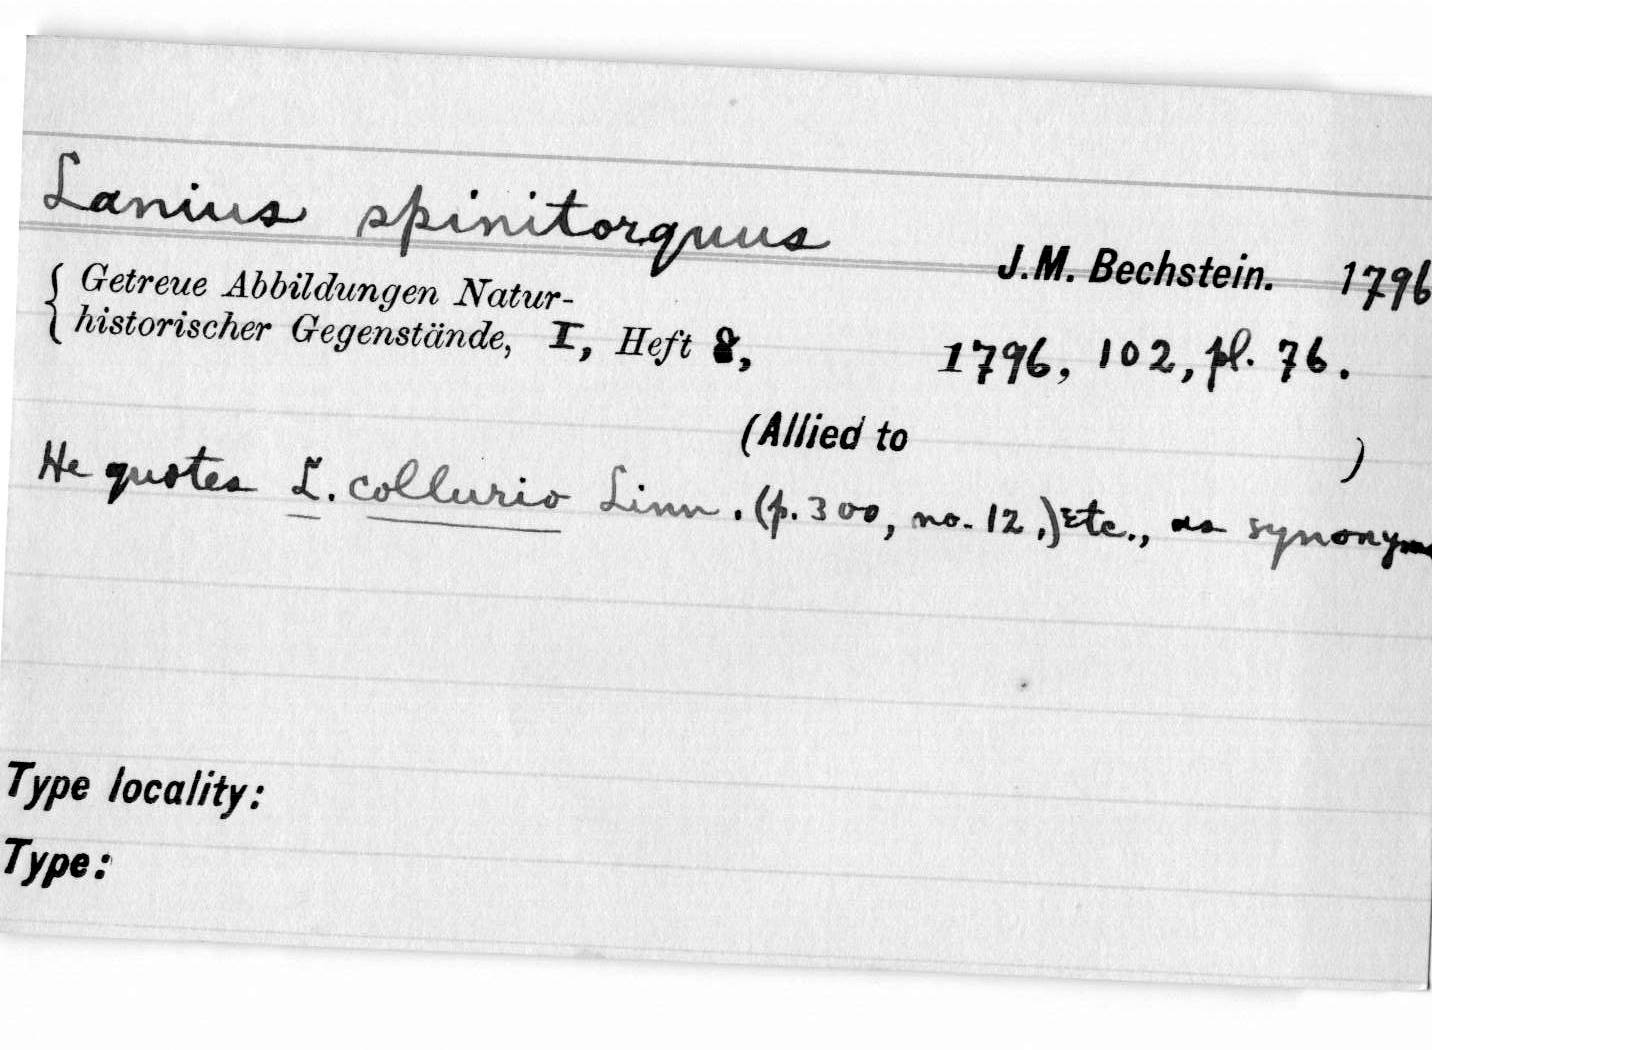 Lanius spinitorquus
J.M. Bechstein. 1796
{ Getreue Abbildungen Natur-
historischer Gegenstände, I, Heft 8, 1796, 102, pl. 76.
(Allied to )
He quotes L. collurio Linn. (p. 300, no. 12.) Etc., as synonyms
Type locality:
Type: